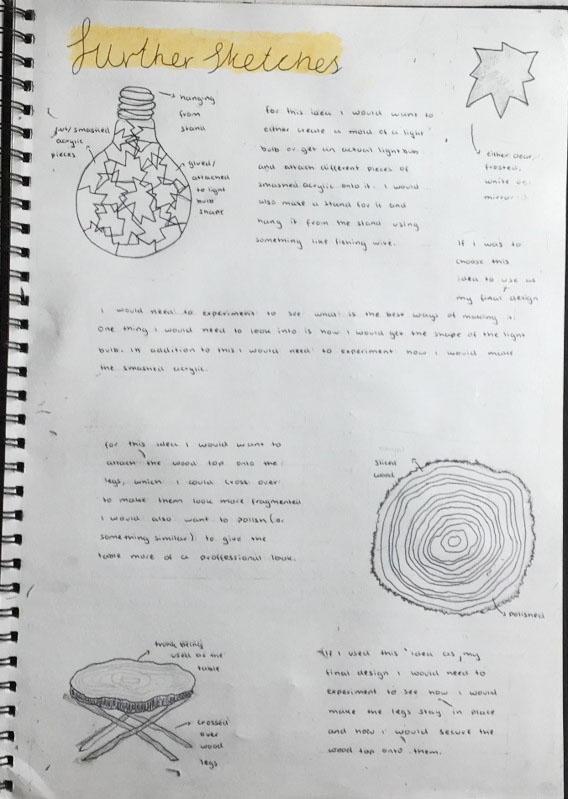 further sketches
hanging
from
stand
cut/smashed
acrylic
pieces
glued/
attached
to light
bulb
shape
for this idea I would want to
either create a mold of a light
bulb or get an actual lightbulb
and attach different pieces of
smashed acrylic onto it. I would
also make a stand for it and
hang it from the stand using
something like fishing wire.
either clear,
frosted,
white or
mirror
If I was to
choose this
idea to use as
my final design
I would need to experiment to see what is the best ways of making it.
One thing I would need to look into is how I would get the shape of the light
bulb. In addition to this I would need to experiment how I would make
the smashed acrylic.
for this idea I would want to
attach the wood top onto the
legs, which I could cross over
to make them look more fragmented
I would also want to polish (or
something similar) to give the
table more of a proffessional look.
sliced
wood
polished
trunk being
used as the
table
crossed
over
wood
legs
If I used this idea as my
final design I would need to
experiment to see how I would
make the legs stay in place
and how I would secure the
wood top onto them.